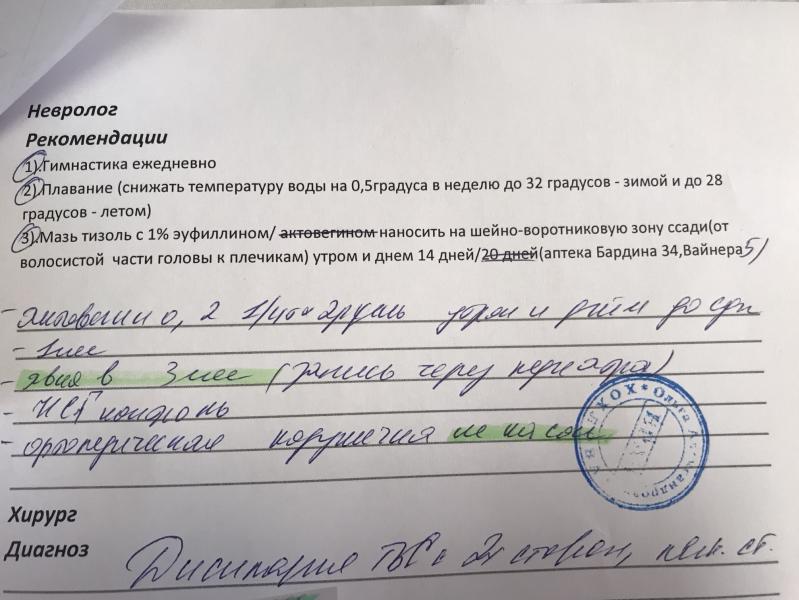 Невролог
Рекомендации
1).Гимнастика ежедневно
2).Плавание (снижать температуру воды на 0,5градуса в неделю до 32 градусов - зимой и до 28
градусов - летом)
3).Мазь тизоль с 1% эуфиллином/ актовегином наносить на шейно-воротниковую зону ссади(от
волосистой части головы к плечикам) утром и днем 14 дней/20 дней(аптека Бардина 34,Вайнера 5)
- 0,2 утром и днём до
- 1 мес
- явка в 3 мес (запись через педиатра)
- НСГ контроль
- ортопедическая
Ольга Александров
Хирург
Диагноз Дисплазия ТБС с 2х сторон, ст.